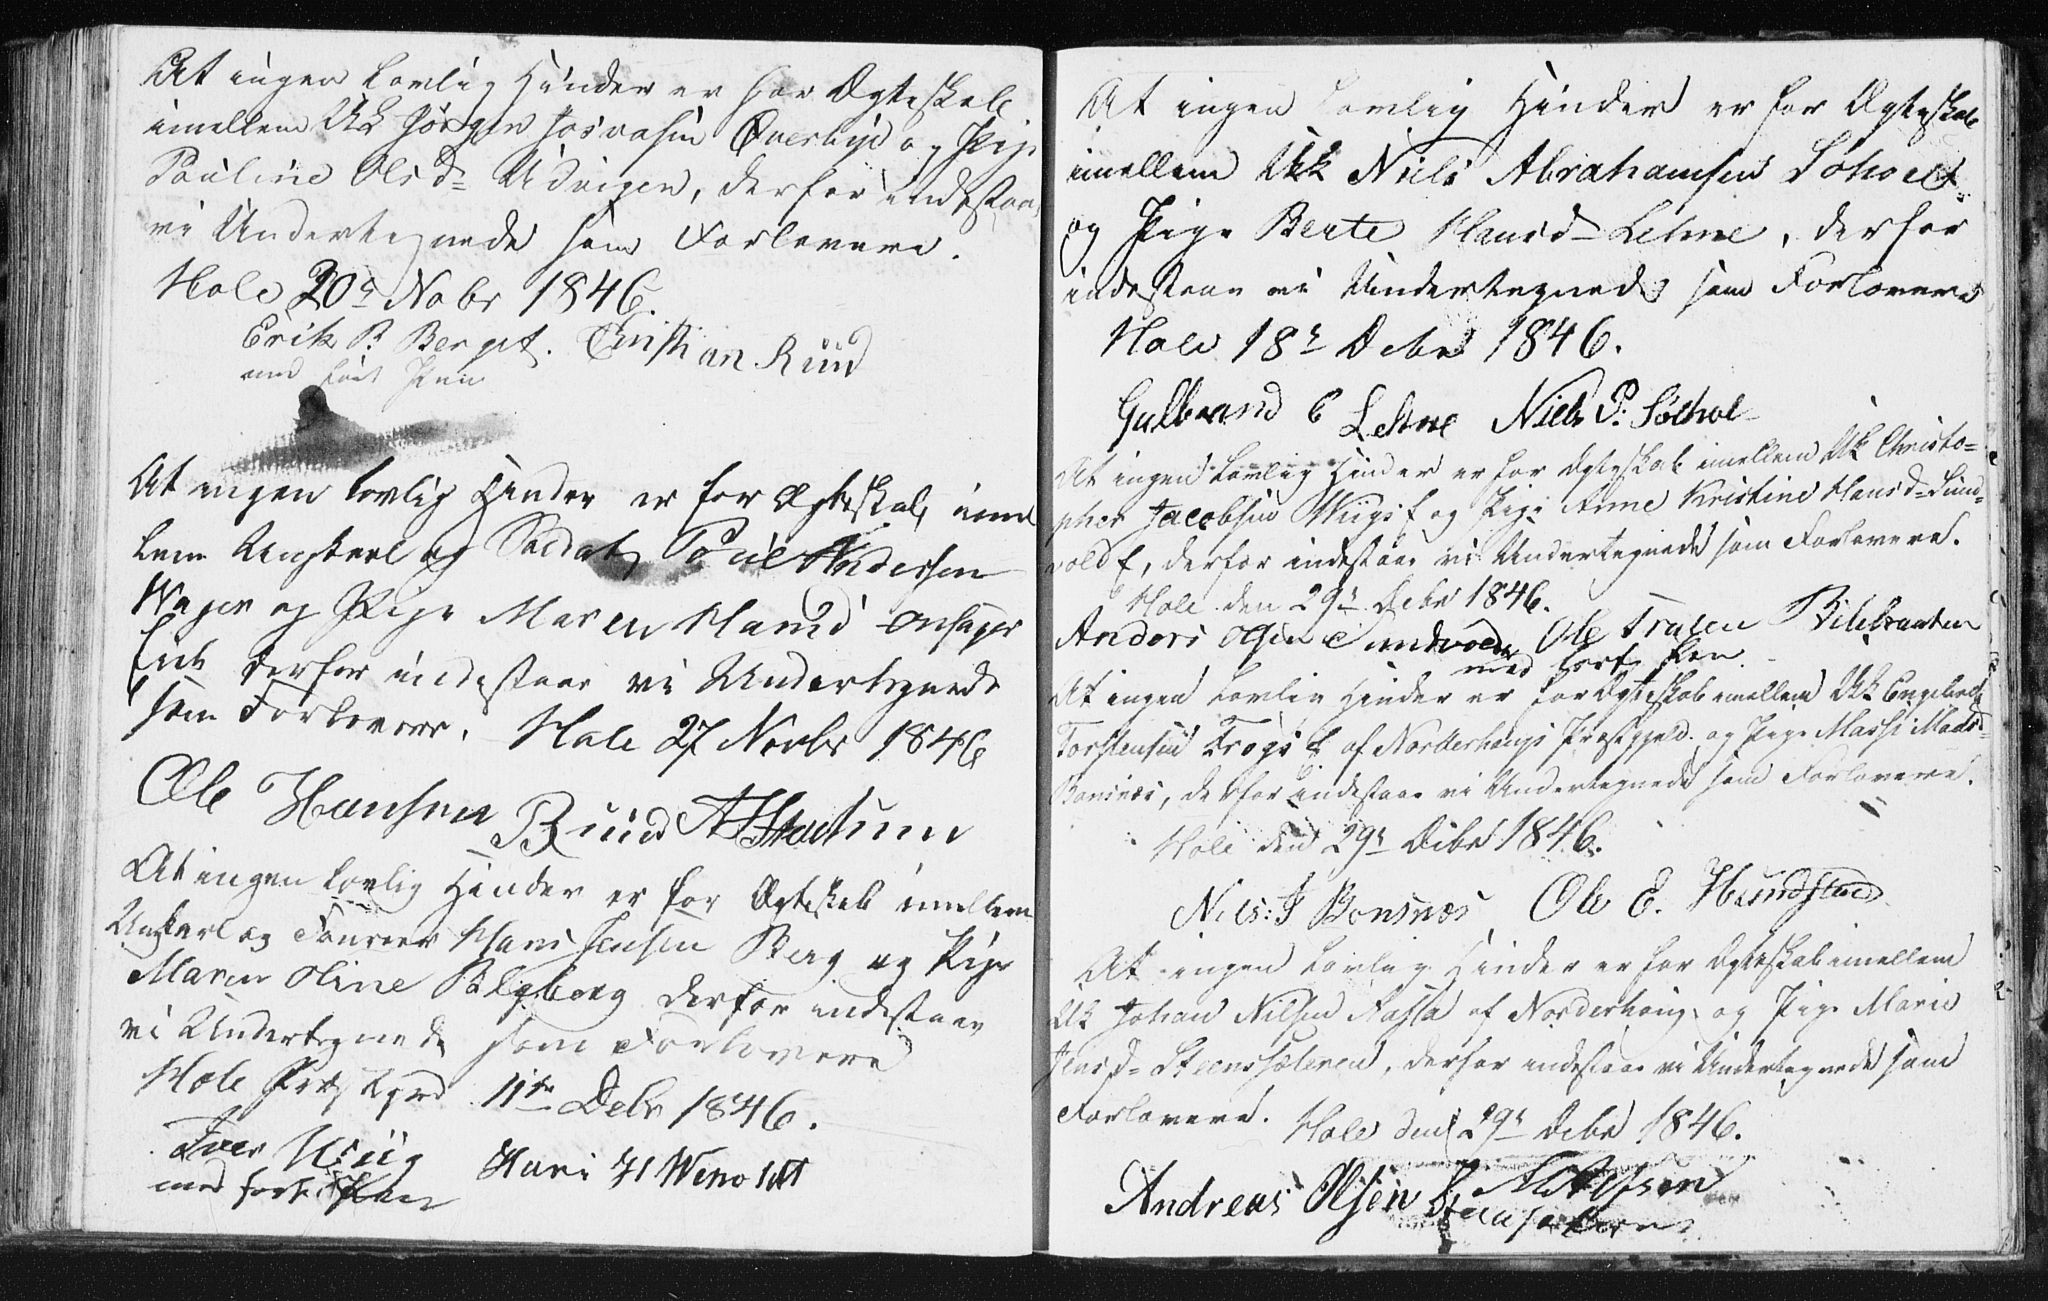 At ingen Lovlig Hinder er for Ægteskab
imellem Uk Jørgen Josvasen Øverbye og Pige
Pauline Olsd= Udvigen, derfor indestaae
vi Undertegnede som Forlovere.
Hole 20 Nobr 1846.
Erik P. Berget. Christian Ruud
med ført Pen
At ingen lovlig Hinder er for Ægteskab imel
lem Ungkarl og Soldat Poul Andersen
Wager og Pige Maren Hansd
Eie derfor indestaae vi Undertegnede
som Forlovere. Hole 27 Novbr 1846
Ole Hansen Ruud
At ingen lovlig Hinder er for Ægteskab imellem
Ungkarl og Hans Jensen Berg og Pige
Maren Oline derfor indestaae
vi Undertegnede som Forlovere
Hole Præstgjd 11te Debr 1846.
Iver Wiig Hans
med ført Pen
At ingen Lovlig Hinder er for Ægteskab
imellem Uk Niels Abrahamsen Søhoel
og Pige Berte Hansd= Lehne, derfor
indestaae vi Undertegnede som Forlovere
Hole 18 Debr 1846.
Gulbrand C Lehne Niels P: Sølhol
At ingen Lovlig Hinder er for Ægteskab imellem Uk Christo=
pher Jacobsen Wiigs E og Pige Anne Kristine Hansd= Sund=
vold E, derfor indestaae vi Undertegnede som Forlovere.
Hole den 29 Debr 1846.
Anders Olsen Sundvolden Ole
med ført Pen
At ingen Lovlig Hinder er for Ægteskab imellem Uk Engebret
Torstensen Trøgs E af Norderhougs Præstegjeld. og Pige Massi Mads=
Bønsnes, derfor indestaae vi Undertegnede som Forlovere.
Hole den 29 Debr 1846.
Nils: J Bonsnæs Ole E. Hundstad
At ingen Lovlig Hinder er for Ægteskab imellem
Uk Johan Nilsen Rasta af Norderhoug, og Pige Marie
Jensd= Steenssæteren, derfor indestaae vi Undertegnede som
Forlovere. Hole den 29 Debr 1846.
Andreas Olsen